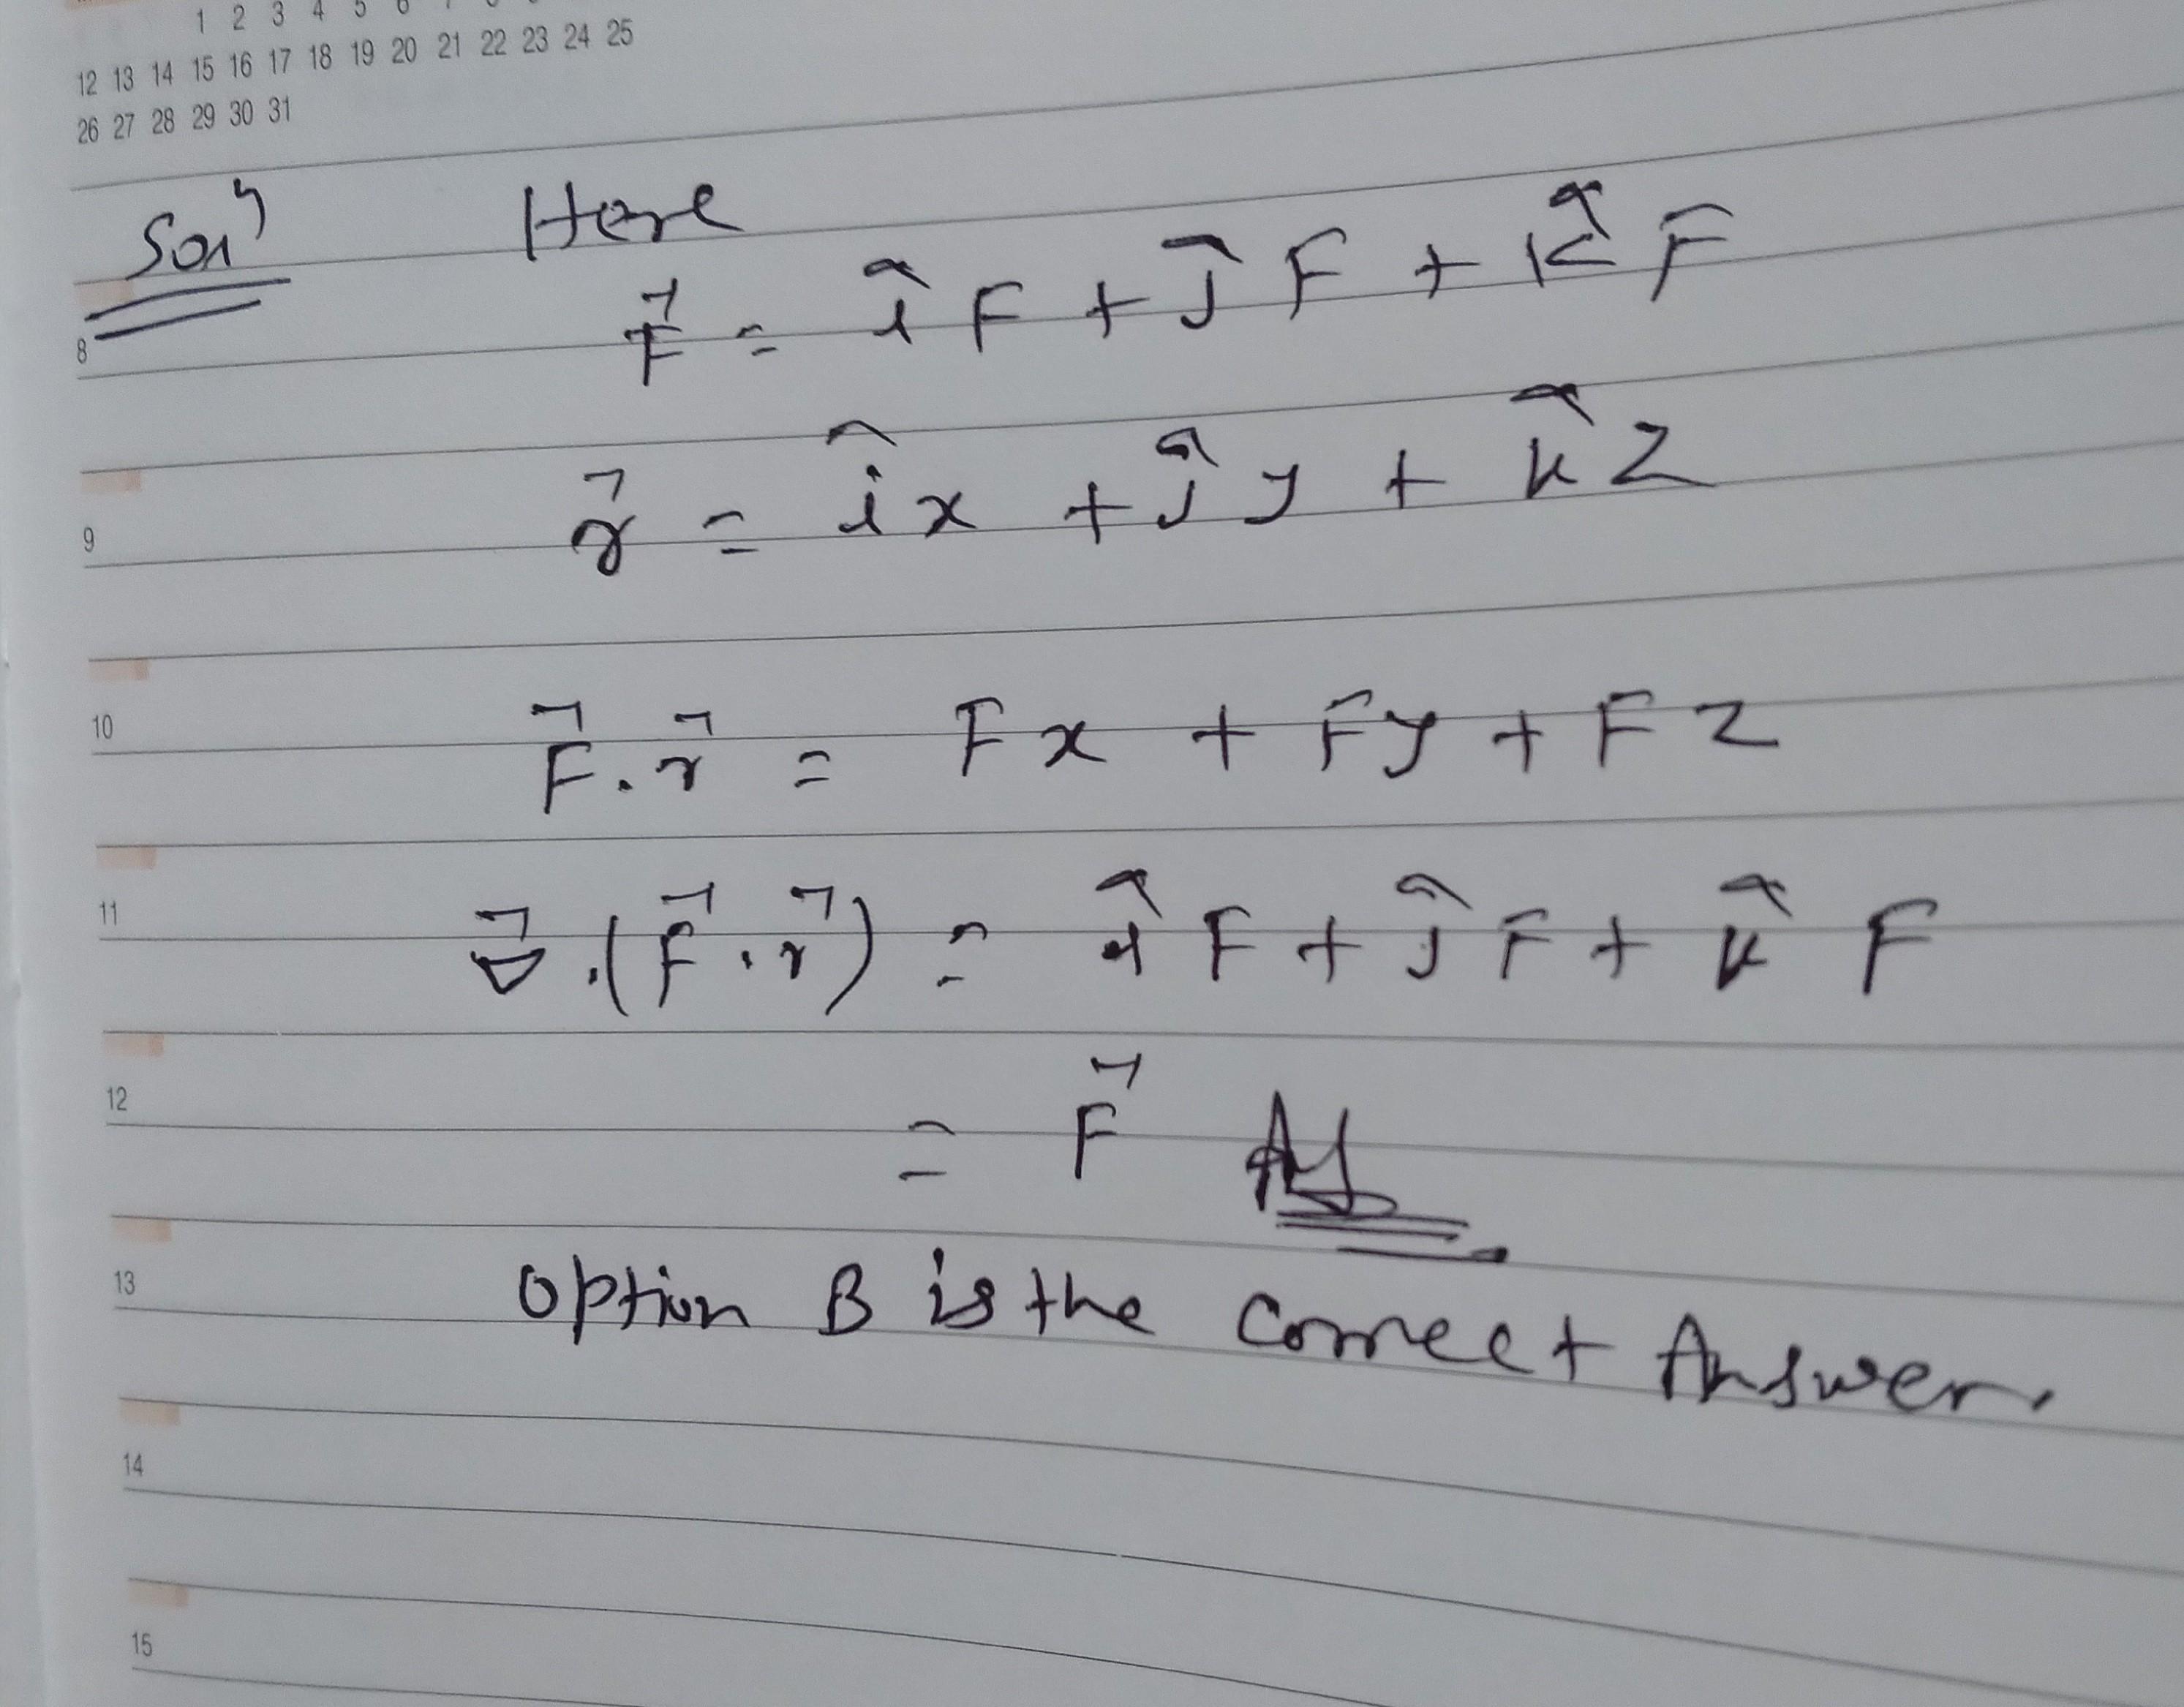 1 2 3 4 5 6 7 8
12 13 14 15 16 17 18 19 20 21 22 23 24 25
26 27 28 29 30 31
Solⁿ Here
8 F⃗ = î F + ĵ F + k̂ F
9 r⃗ = î x + ĵ y + k̂ z
10 F⃗ . r⃗ = F x + F y + F z
11 ∇⃗ . (F⃗ . r⃗) = î F + ĵ F + k̂ F
12 = F⃗ Ans
13 Option B is the Correct Answer.
14
15